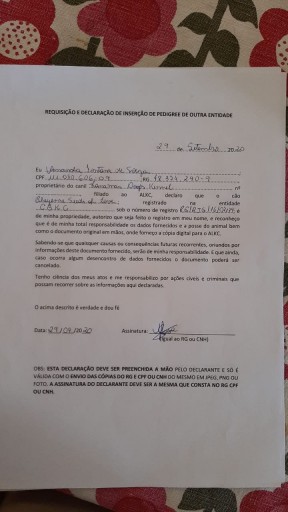 REQUISIÇÃO E DECLARAÇÃO DE INSERÇÃO DE PEDIGREE DE OUTRA ENTIDADE
29 de Setembro 2020
Eu Amanda Santana de Souza,
CPF, RG,
proprietário do canil Dogs Kennel, nº
filiado ao ALKC, declaro que o cão
registrado na entidade
CBKC sob o número de registro e
de minha propriedade, autorizo que seja feito o registro em meu nome, e reconheço
que é de minha total responsabilidade os dados fornecidos e a posse do animal bem
como o documento original em mãos, onde forneço a cópia digital para o ALKC.
Sabendo se que quaisquer causas ou consequências futuras recorrentes, errandos por
informações deste documento fornecido, serão de minha responsabilidade e que ainda,
caso ocorra algum desencontro de dados fornecidos o documento poderá ser
cancelado.
Tenho ciência dos meus atos e me responsabilizo por ações cíveis e criminais que
possam recorrer sobre as informações aqui declaradas.
O acima descrito é verdade e dou fé
Data: 29/09/2020 Assinatura:
(Igual ao RG ou CNH)
OBS: ESTA DECLARAÇÃO DEVE SER PREENCHIDA A MÃO PELO DECLARANTE E SÓ É
VÁLIDA COM O ENVIO DAS CÓPIAS DO RG E CPF OU CNH DO MESMO EM JPEG, PNG OU
FOTO, A ASSINATURA DO DECLARANTE DEVE SER A MESMA QUE CONSTA NO RG CPF
OU CNH.